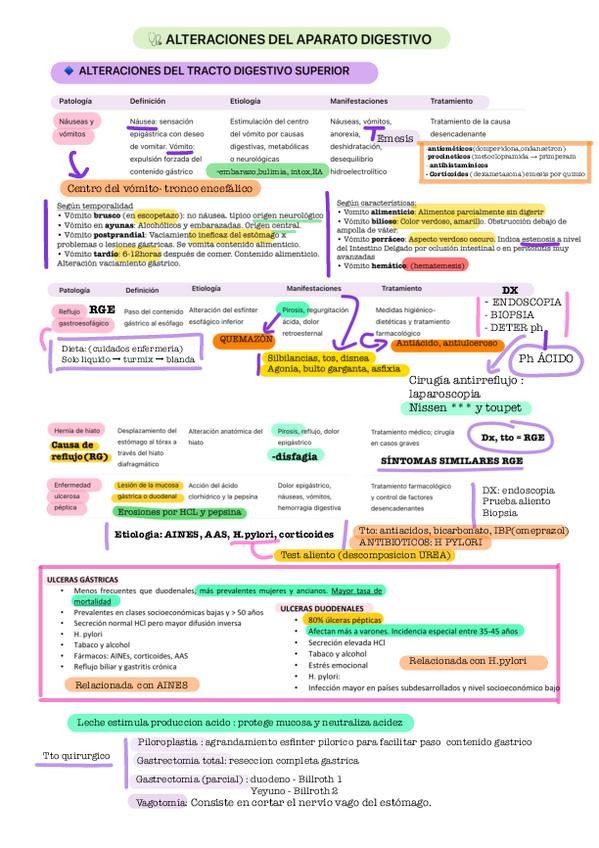 ALTERACIONES DEL APARATO DIGESTIVO
ALTERACIONES DEL TRACTO DIGESTIVO SUPERIOR
Patología Definición Etiología Manifestaciones Tratamiento
Náuseas y vómitos
Náusea: sensación
epigástrica con deseo
de vomitar. Vómito:
expulsión forzada del
contenido gástrico
Estimulación del centro
del vómito por causas
digestivas, metabólicas
o neurológicas
-embarazo,bulimia, intox,RA
Náuseas, vómitos,
anorexia,
deshidratación,
desequilibrio
hidroelectrolítico
Emesis
Tratamiento de la causa
desencadenante
antieméticos(domperidona,ondansetron)
procinéticos (metoclopramida → primperam
- antihistamínicos
- Corticoides (dexametasona)emesis por quimio
Centro del vómito- tronco encefálico
Según temporalidad
• Vómito brusco (en escopetazo): no náusea, típico origen neurológico
• Vómito en ayunas: Alcohólicos y embarazadas. Origen central.
• Vómito postprandial: Vaciamiento ineficaz del estómago x
problemas o lesiones gástricas. Se vomita contenido alimenticio.
• Vómito tardío: 6-12horas después de comer. Contenido alimenticio.
Alteración vaciamiento gástrico.
Según características:
• Vómito alimenticio: Alimentos parcialmente sin digerir
• Vómito bilioso: Color verdoso, amarillo. Obstrucción debajo de
ampolla de váter.
• Vómito porráceo: Aspecto verdoso oscuro. Indica estenosis a nivel
del Intestino Delgado por oclusión intestinal o en peritonitis muy
avanzadas
• Vómito hemático: (hematemesis)
Patología Definición Etiología Manifestaciones Tratamiento
Reflujo RGE
gastroesofágico
Paso del contenido
gástrico al esófago
Alteración del esfínter
esofágico inferior
QUEMAZÓN
Pirosis, regurgitación
ácida, dolor
retroesternal
Medidas higiénico-
dietéticas y tratamiento
farmacológico
Antiácido, antiulceroso
DX
- ENDOSCOPIA
- BIOPSIA
- DETER ph
Ph ÁCIDO
Dieta: (cuidados enfermería)
Solo liquido → turmix → blanda
Silbilancias, tos, disnea
Agonia, bulto garganta, asfixia
Cirugía antirreflujo :
laparoscopia
Nissen *** y toupet
Hernia de hiato
Causa de
reflujo(RG)
Desplazamiento del
estómago al tórax a
través del hiato
diafragmático
Alteración anatómica del
hiato
Pirosis, reflujo, dolor
epigástrico
-disfagia
Tratamiento médico; cirugía
en casos graves
SÍNTOMAS SIMILARES RGE
Dx, tto = RGE
Enfermedad
ulcerosa
péptica
Lesión de la mucosa
gástrica o duodenal
Acción del ácido
clorhídrico y la pepsina
Erosiones por HCL y pepsina
Dolor epigástrico,
náuseas, vómitos,
hemorragia digestiva
Tratamiento farmacológico
y control de factores
desencadenantes
DX: endoscopia
Prueba aliento
Biopsia
Etiologia: AINES, AAS, H.pylori, corticoides
Tto: antiacidos, bicarbonato, IBP(omeprazol)
ANTIBIOTICOS: H PYLORI
Test aliento (descomposicion UREA)
ULCERAS GÁSTRICAS
• Menos frecuentes que duodenales, más prevalentes mujeres y ancianos. Mayor tasa de
mortalidad
• Prevalentes en clases socioeconómicas bajas y > 50 años
• Secreción normal HCl pero mayor difusión inversa
• H. pylori
• Tabaco y alcohol
• Fármacos: AINEs, corticoides, AAS
• Reflujo biliar y gastritis crónica
Relacionada con AINES
ULCERAS DUODENALES
• 80% úlceras pépticas
• Afectan más a varones. Incidencia especial entre 35-45 años
• Secreción elevada HCl
• Tabaco y alcohol
• Estrés emocional
• H. pylori:
• Infección mayor en países subdesarrollados y nivel socioeconómico bajo
Relacionada con H.pylori
Leche estimula produccion acido : protege mucosa y neutraliza acidez
Tto quirurgico
Piloroplastia : agrandamiento esfinter pilorico para facilitar paso contenido gastrico
Gastrectomia total: reseccion completa gastrica
Gastrectomia (parcial) : duodeno - Billroth 1
Yeyuno - Billroth 2
Vagotomia: Consiste en cortar el nervio vago del estómago.